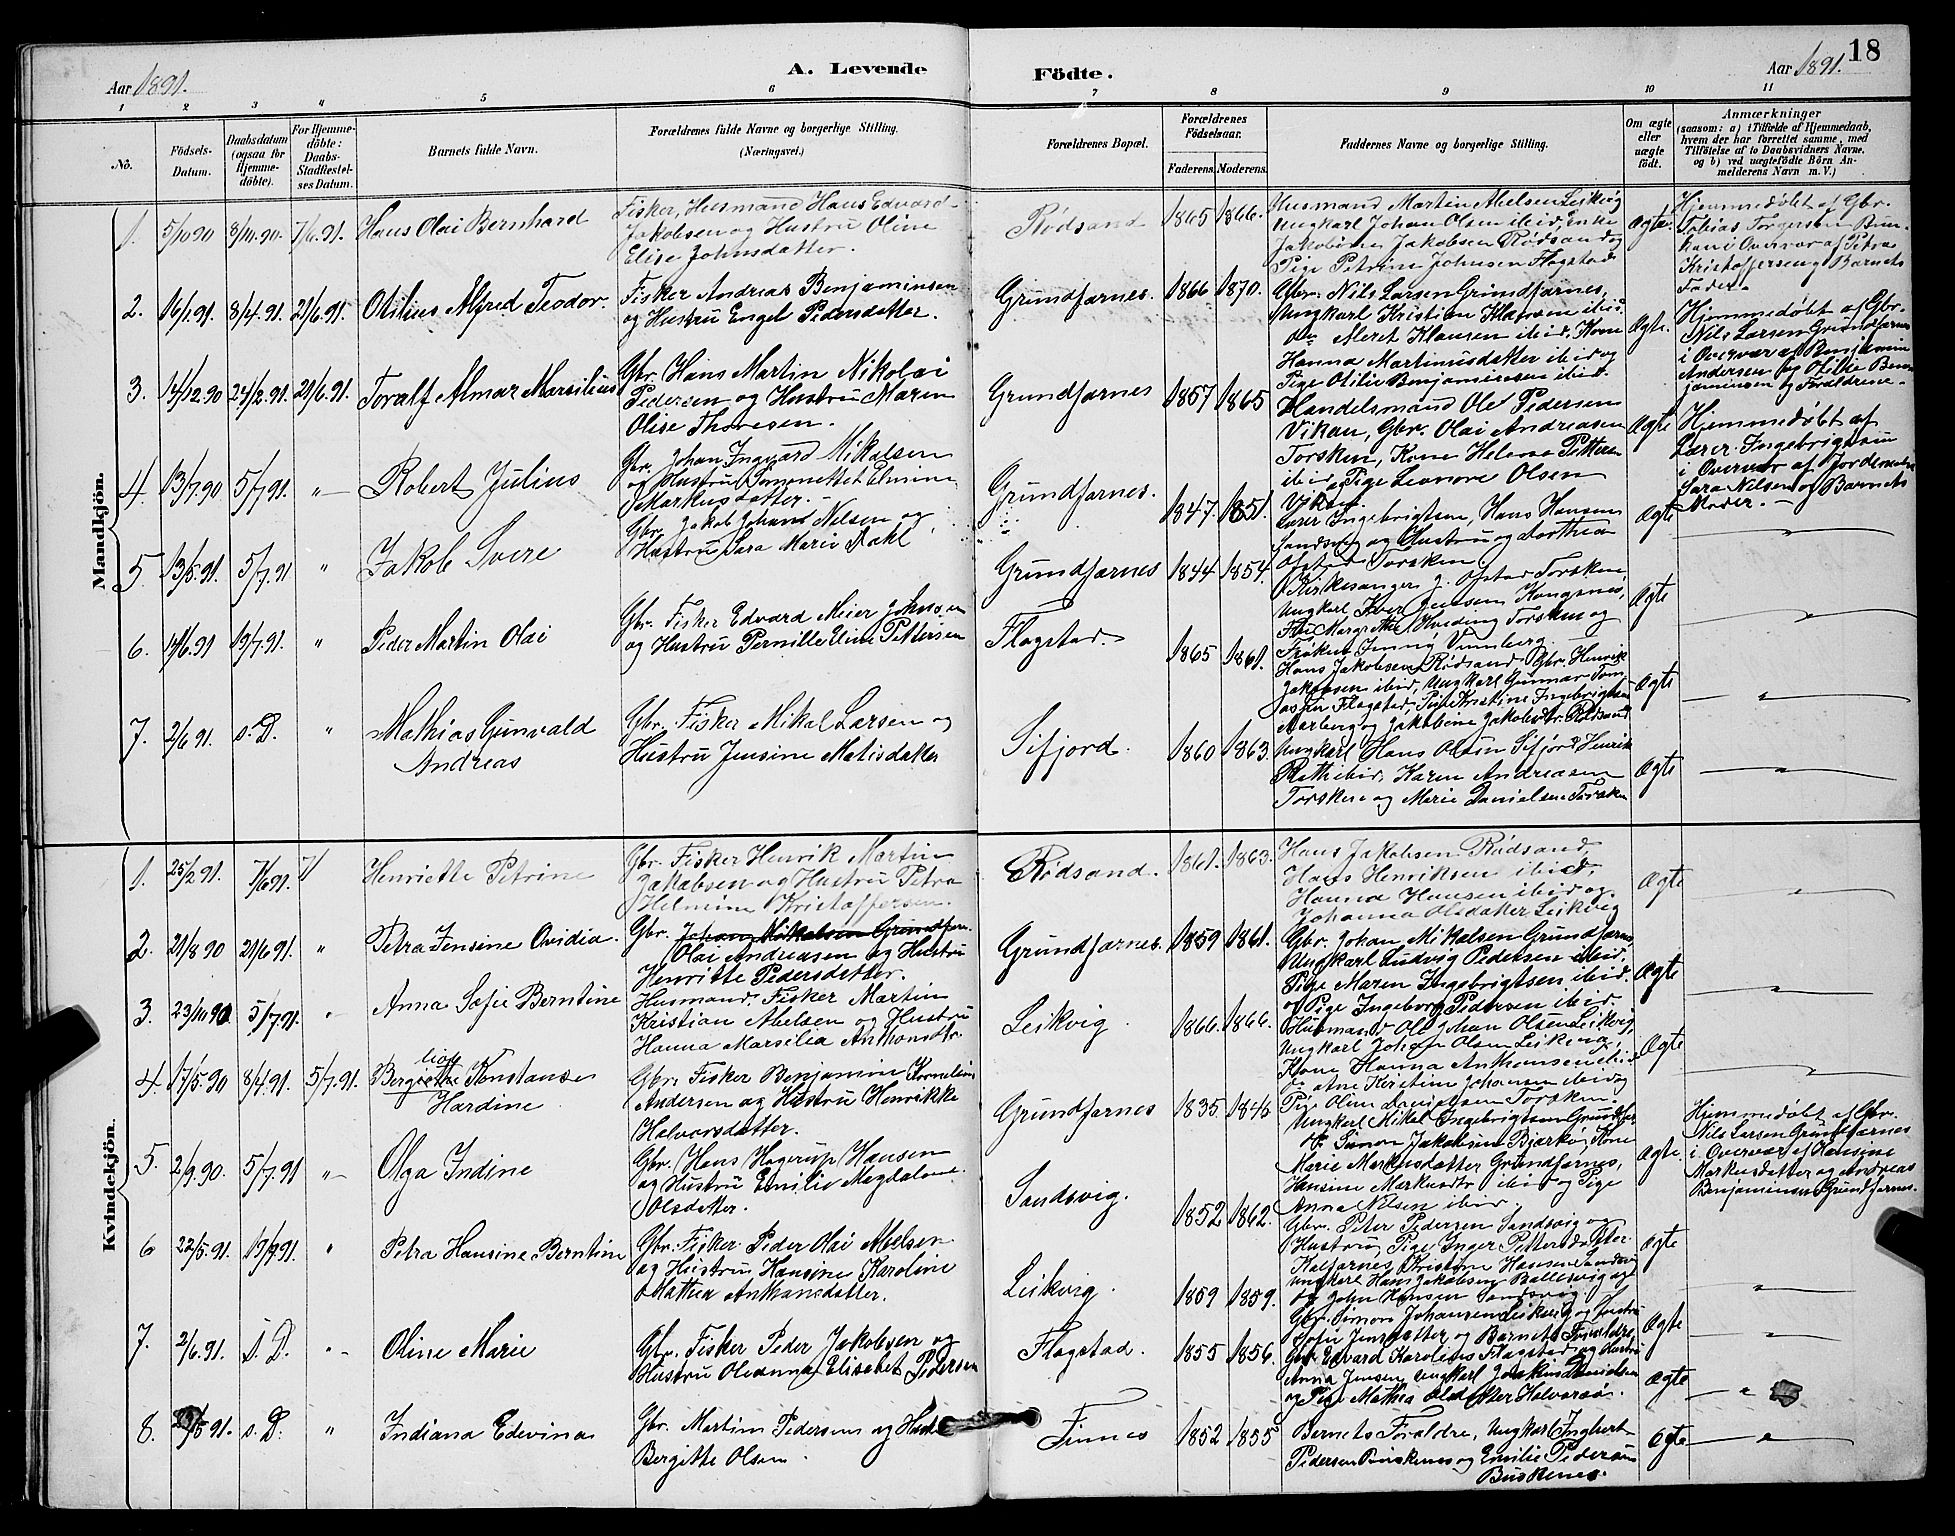 18
A. Levende Födte.
Aar 1891.
Aar 1891.
1 2 3 4 5 6 7 8 9 10 11
No.
Födsels-Datum.
Daabsdatum (ogsaa for Hjemmedöbte).
For Hjemmedöbte: Daabs-Stadfestelses Datum.
Barnets fulde Navn.
Forældrenes fulde Navne og borgerlige Stilling.
(Næringsvei.)
Forældrenes Bopæl.
Forældrenes Födselsaar.
Faderens. Moderens.
Faddernes Navne og borgerlige Stilling.
Om ægte eller uægte födt.
Anmærkninger
(saasom: a) i Tilfælde af Hjemmedaab,
hvem der har forrettet samme, med
Tilföielse af to Daabsvidners Navne,
og b) ved uægtefödte Börn Anmelderens Navn m. V.)
Mandkjön.
1. 5/10 90 8/10.90. 7/6.91. Hans Olai Bernhard
Fisker, Husmand Hans Edvard
Jakobsen og Hustru Oline
Elise Johnsdatter.
Rödsand 1865 1866.
Husmand Martin Abelsen Leikvig
Ungkarl Johan Olsen ibid, Enke
Jakobine Jakobsen Rödsand og
Pige Petrine Johnsen Flagstad
Ægte.
Hjemmedöbt af Gbr.
Tobias Torgersen
i Overvær af Petra
Kristoffersen og Barnets
Fader.
2. 16/1.91. 8/4.91. 21/6.91. Otilius Alfred Teodor.
Fisker Andreas Benjaminsen
og Hustru Engel Pedersdatter.
Grundfarnes. 1866 1870.
Gbr. Nils Larsen Grundfarnes,
Ungkarl Kristian Klausen ibid.
do Meret Klausen ibid, Kone
Hanna Martinusdatter ibid og
Pige Otilie Benjaminsen ibid.
Ægte.
Hjemmedöbt af Gbr.
Nils Larsen Grundfarnes
i Overvær af Benjamin
Andersen og Otilde Benjaminsen og Forældrene.
3. 14/12.90 24/2.91. 21/6.91. Toralf Almar Marsilius
Gbr. Hans Martin Nikolai
Pedersen og Hustru Maren
Olise Thoresen.
Grundfarnes 1857 1865
Handelsmand Ole Pedersen
Vikan, Gbr. Olai Andreasen
Torsken, Kone Helene Pettersen
ibid og Pige Leonore Olsen
Vikan.
Ægte
Hjemmedöbt af
Lærer Ingebrigtsen
i Overvær af Jordemoder
Sara Nilsen og Barnets
Moder.
4. 13/7.90 5/7.91. " Robert Julius
Gbr. Johan Ingvard Mikalsen
og Hustru Elmine
Markusdatter.
Grundfarnes. 1847. 1851.
Lærer Ingebrigtsen, Hans Hansen
Sandsvig og Hustru og Dorthea
Ofstad Torsken
Ægte
5 13/5.91. 5/7.91 " Jakob Sverre
Gbr. Jakob Johan Nilsen og
Hustru Sara Marie Dahl
Grundfarnes 1844 1854.
Kirkesanger J. Ofstad Torsken
Ungkarl Iver Jensen Kongsnes,
Margrethe Torsken og
Fröken Jenny
Ægte
6. 14/6.91 19/7.91. " Peder Martin Olai
Gbr. Fisker Edvard Meier Johnsen
og Hustru Pernille Eline Pettersen
Flagstad. 1865 1861.
Hans Jakobsen Rödsand Gbr. Henrik
Jakobsen ibid, Ungkarl Gunnar
Flagstad, Pige Kristine Ingebrigtsen
og Jakobine Rödsand
Ægte
7. 2/6.91. s.D. " Mathias Gunvald
Andreas
Gbr. Fisker Mikal Larsen og
Hustru Jensine Matisdatter
Sifjord. 1860 1863.
Ungkarl Hans Olsen Sifjord Henrik
ibid, Karen Andreasen
Torsken og Marie Danielsen Torsken
Ægte
Kvindekjön.
1. 25/2.91. 7/6.91. Henriette Petrine
Gbr. Fisker Henrik Martin
Jakobsen og Hustru Petra
Helmine Kristoffersen.
Rödsand. 1861. 1863.
Hans Jakobsen Rödsand,
Hans Henriksen ibid,
Hanna Hansen ibid og
Johanna Olsdatter Leikvig
Ægte
2. 21/8 90 21/6.91. " Petra Jensine Ovidia.
Gbr. Johan Mikalsen Grundfarn.
Olai Andreasen og Hustru
Henritte Pedersdatter.
Grundfarnes. 1859 1861.
Gbr. Johan Mikalsen Grundfarnes,
Ungkarl Ludvig Pedersen ibid,
Pige Maren Ingebrigtsen ibid.
og Pige Ingeborg Pedersen ibid.
Ægte
3. 23/10.90. 5/7.91. " Anna Sofie Berntine
Husmand. Fisker Martin
Kristian Abelsen og Hustru
Hanna Marsilia Anthonsdtr.
Leikvig. 1866. 1866.
Husmand Ole Johan Olsen Leikvig,
Ungkarl Johan Olsen Leikvig,
Kone Hanna Anthonsen ibid
Kirstine Johansen ibid og
Pige Oline Danielsen Torsken.
Ægte
4. 17/5.90 8/4.91. 5/7.91. Bergiethe Konstanse
Hardine
Gbr. Fisker Benjamin Kornelius
Andersen og Hustru Henrikke
Halvorsdatter.
Grundfarnes 1835 1846
Ungkarl Mikal Ingebrigtsen Grundfar
Simon Jakobsen Bjarkö, Kone
Marie Markusdatter Grundfarnes,
Hansine Markusdtr ibid og Pige
Anna Nilsen ibid.
Ægte.
Hjemmedöbt af Gbr.
Nils Larsen Grundfarnes
i Overvær af Hansine
Markusdatter og Andreas
Benjaminsen Grundfarnes.
5. 2/9.90. 5/7.91 " Olga Indine
Gbr. Hans Hagerup Hansen
og Hustru Emilie Magdalene
Olsdatter.
Sandsvig. 1852 1862.
Gbr. Peter Pedersen Sandsvig og
Hustru, Pige Inger Pettersdatter
Kalfarnes, Kristine Hansen Sandsvig
Ungkarl Hans Jakobsen Ballesvig og
do John Hansen Sandsvig
Ægte
6 22/5.91. 19/7.91. " Petra Hansine Berntine
Gbr. Fisker Peder Olai Abelsen
og Hustru Hansine Karoline
Mathea Anthonsdatter.
Leikvig. 1859 1859.
Gbr. Simon Johansen Leikvig og Hustru
Sofie Jensdatter og Barnets Forældre,
Ægte
7. 2/6.91. s.D. " Oline Marie
Gbr. Fisker Peder Jakobsen og
Hustru Oleanna Elisebet Pedersen
Flagstad. 1855 1856.
Gbr. Edvard Karolius Flagstad og Hustru
Anna Jensen, Ungkarl Danielsen
og Pige Mathea Halvorsö.
Ægte
8. /5 91. s.D. " Indiana Edevina
Gbr. Martin Pedersen og
Bergitte Olsen.
Finnes 1852 1855
Bernets Foraldre, Ungkarl Ingbert
Pedersen og Emilie Pedersen
Buskenes.
Ægte